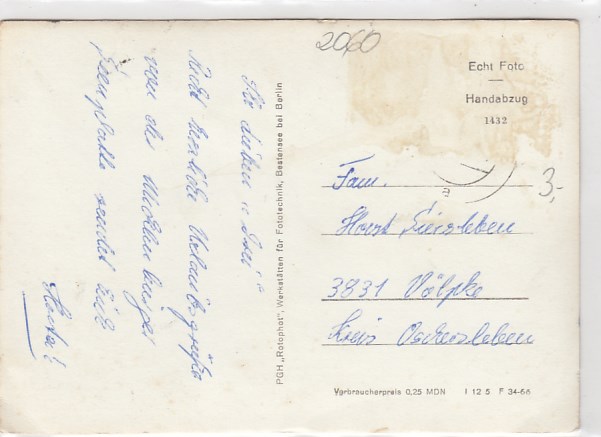 2060
Ihr lieben "Drei"
Recht herzliche Urlaubsgrüße
von der Mecklenburger
Seenplatte sendet Euch
Herta!
PGH „Rotophot", Werkstätten für Fototechnik, Bestensee bei Berlin
Echt Foto
—
Handabzug
1432
3,-
Fam.
Horst Siersleben
3231 Völpke
Kreis Oschersleben
Verbraucherpreis 0,25 MDN I 12 5 F 34-66